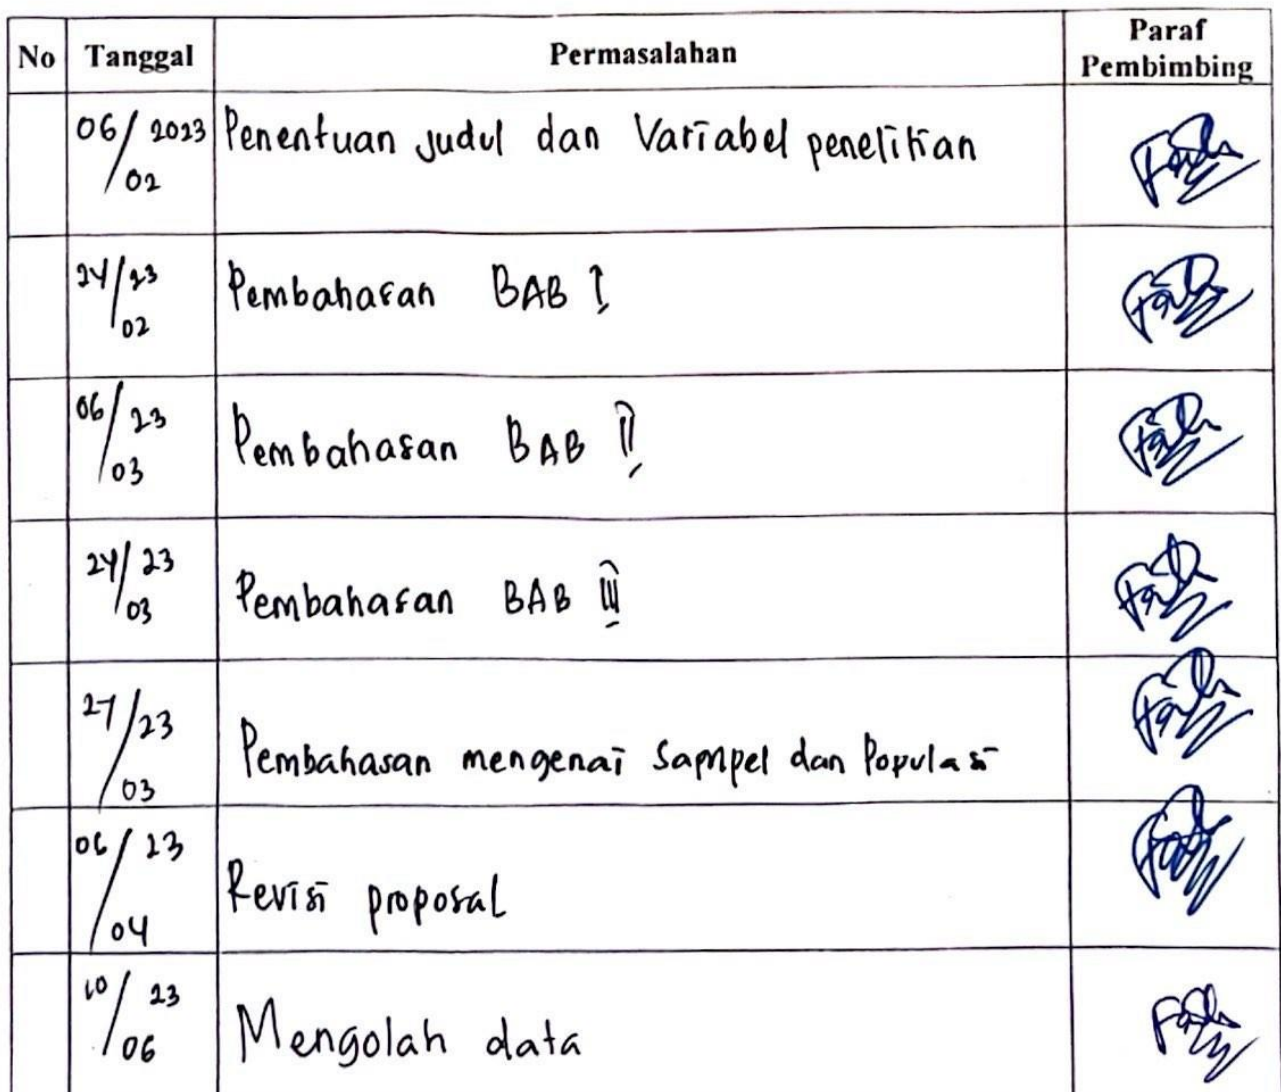 No Tanggal Permasalahan Paraf Pembimbing
06/02 2023 Penentuan judul dan Variabel penelitian
24/02 23 Pembahasan BAB I
06/03 23 Pembahasan BAB II
24/03 23 Pembahasan BAB III
27/03 23 Pembahasan mengenai Sampel dan Populasi
06/04 23 Revisi proposal
10/06 23 Mengolah data